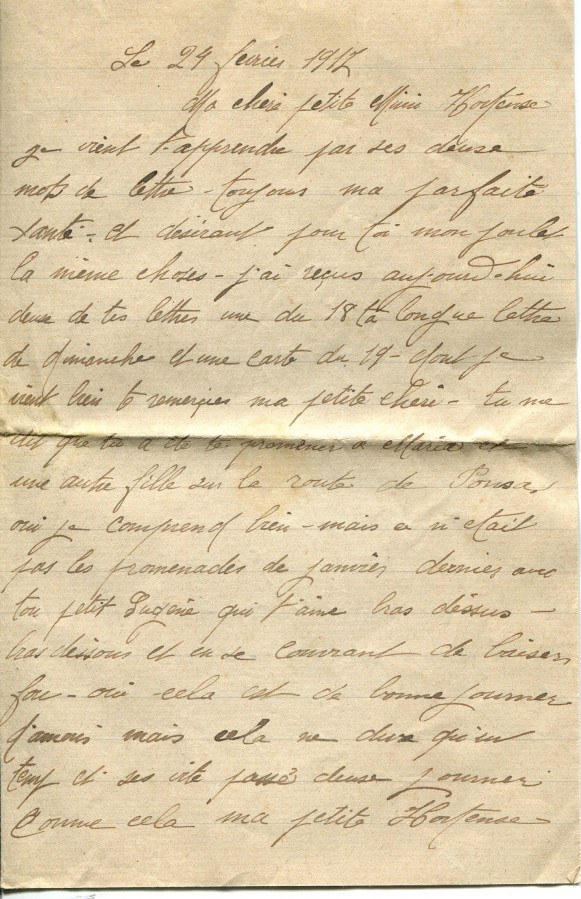 Le 24 fevrier 1917
Ma cheri petite Mimi Hortense
je vient t'apprendre par ses deuse
mots de lettre - toujours ma parfaite
santé - et désirant pour toi mon poulet
la même choses - j'ai reçus aujourd-hui
deuse de tes lettres une du 18 ta longue lettre
de dimanche et une carte du 19 - dont je
vient bien te remercies ma petite cheri - tu me
dit que tu a été te promener a Maria et
une autre fille sur la route de
oui je comprend bien - mais ce n'etait
pas les promenades de janvier dernier avec
ton petit Eugène qui t'aime bras dessus -
bras dessous et en se couvrant de baisers
fou - oui cela est de bonne journer
d'amour mais cela ne dure qu'un
temp et ses vite passé deuse journer
comme cela ma petite Hortense -